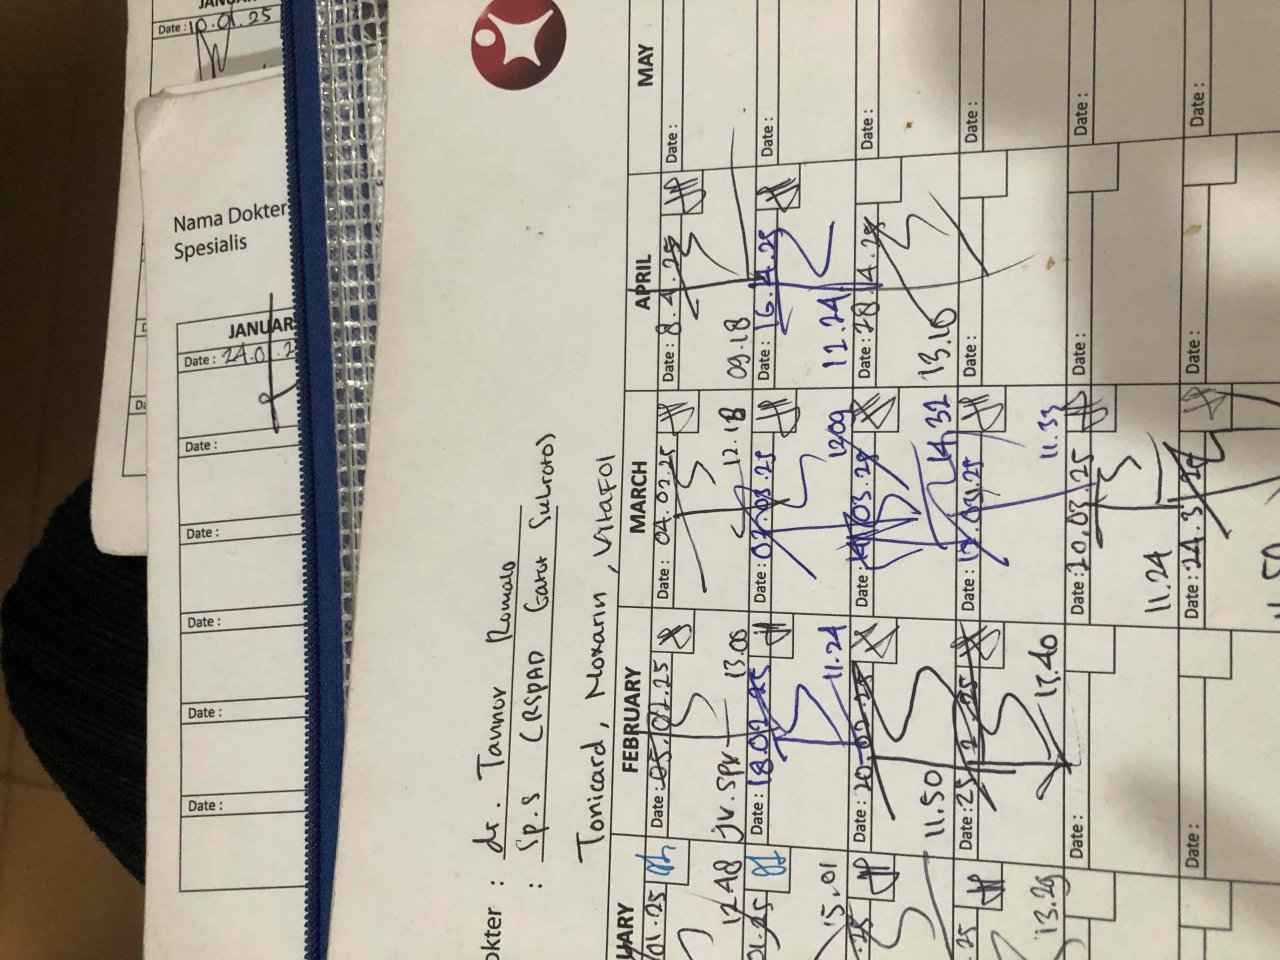 JANUAR
Date : 10.01.25
Nama Dokter
Spesialis
JANUAR
Date : 24.01.2
Date :
Date :
Date :
Date :
Date :
okter : dr. Tannov Romalo
: Sp.S (RSPAD Gatot Subroto)
Tonicard, Moxarin, Vitafol
UARY
FEBRUARY
MARCH
APRIL
MAY
01.25
Date : 05.02.25
Date : 04.03.25
Date : 8.4.25
Date :
12.48
jv. spv
13.00
12.18
09.18
01.25
Date : 18.02.25
Date : 07.03.25
Date : 16.4.25
Date :
15.01
11.24
1209
12.24
.25
Date : 20.02.25
Date : 14.03.25
Date : 28.4.25
Date :
11.50
14.32
13.10
.25
Date : 25.2.25
Date : 17.03.25
Date :
13.29
17.40
11.33
Date :
Date : 20.03.25
Date :
Date :
11.24
Date :
Date : 24.3.25
Date :
Date :